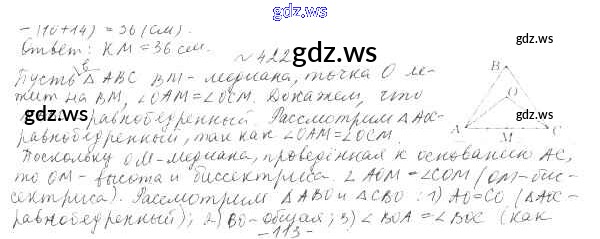 gdz.ws
-(10+14) = 36 (см).
Ответ: KM = 36 см.
№ 422
gdz.ws
Пусть в △ ABC BM - медиана, точка O ле-
жит на BM, ∠OAM = ∠OCM. Докажем, что
gdz.ws
равнобедренный. Рассмотрим △AOC-
gdz.ws
равнобедренный, так как ∠OAM = ∠OCM.
Поскольку OM - медиана, проведённая к основанию AC,
то OM - высота и биссектриса. ∠AOM = ∠COM (OM - бис-
сектриса). Рассмотрим △ABO и △CBO: 1) AO = CO (△AOC-
равнобедренный); 2) BO - общая; 3) ∠BOA = ∠BOC (как
B
O
A M C
-113-
gdz.ws